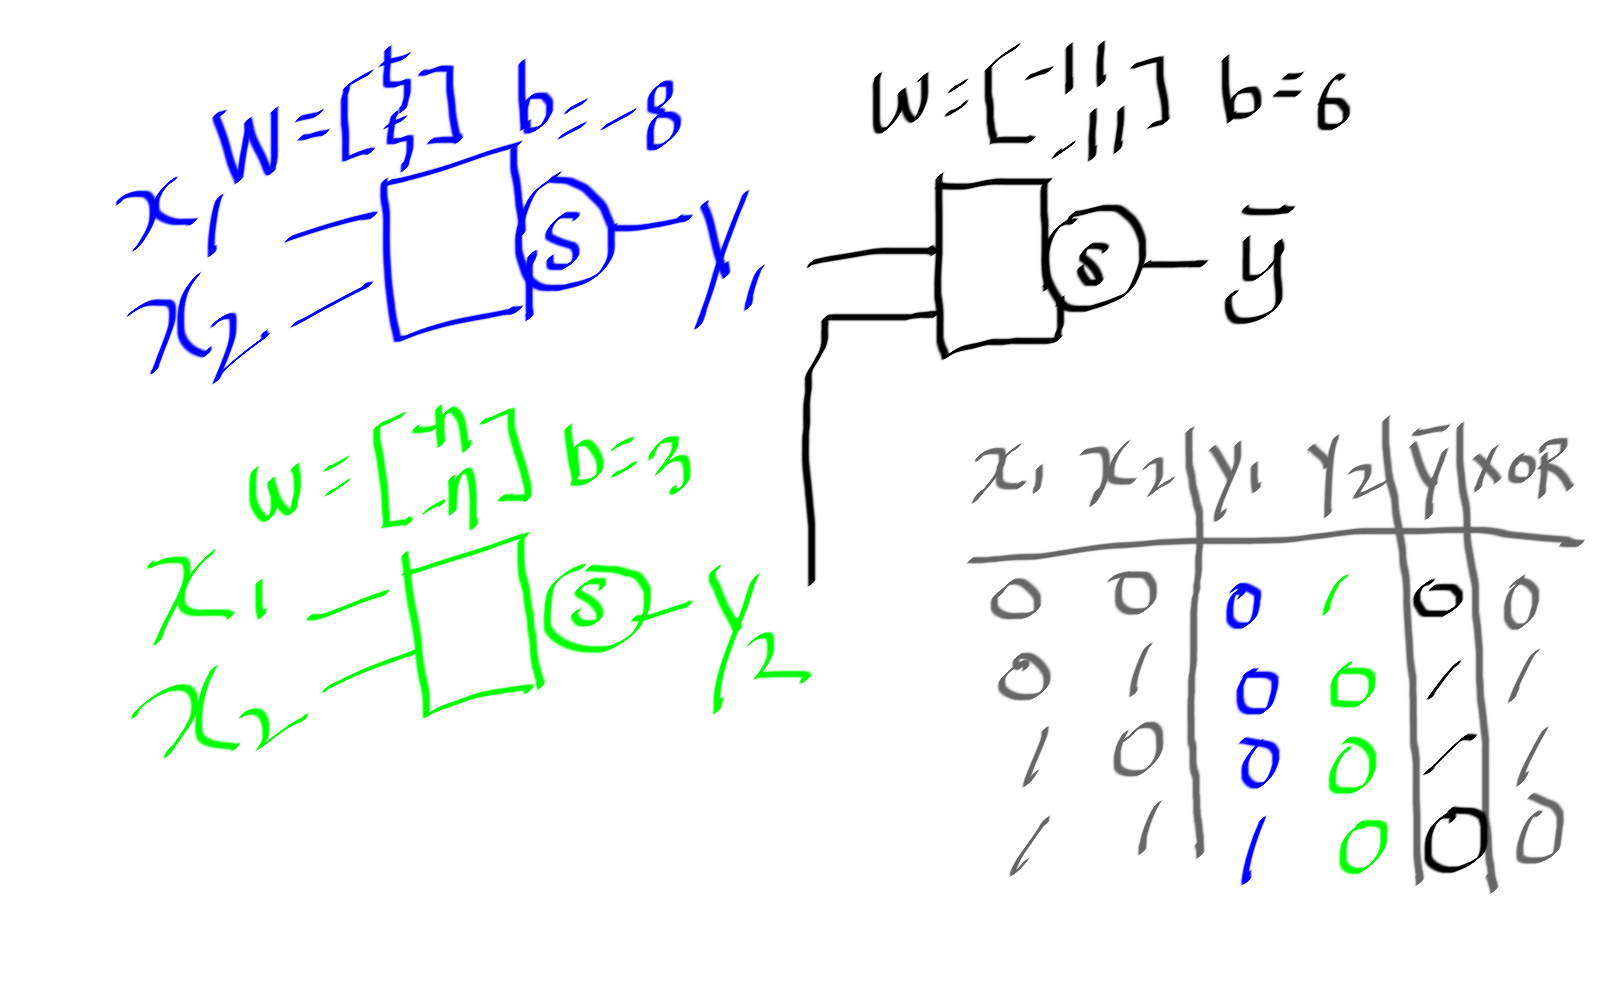 W = [5 5] b = -8
x1
x2
S
y1
w = [-11 -11] b = 6
S
ȳ
w = [-7 -7] b = 3
x1
x2
S
y2
x1 x2 y1 y2 ȳ XOR
0 0 0 1 0 0
0 1 0 0 1 1
1 0 0 0 1 1
1 1 1 0 0 0